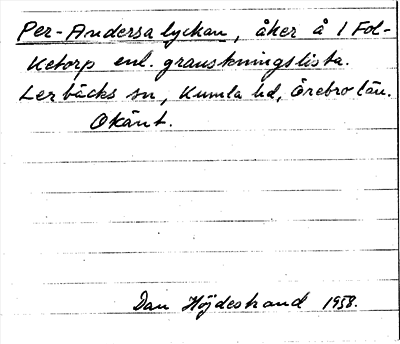 Per-Andersa lyckan, åker å 1 Fol-
ketorp enl. granskningslista.
Lerbäcks sn, Kumla hd, Örebro län.
Okänt.
Dan Höjdestrand 1958.